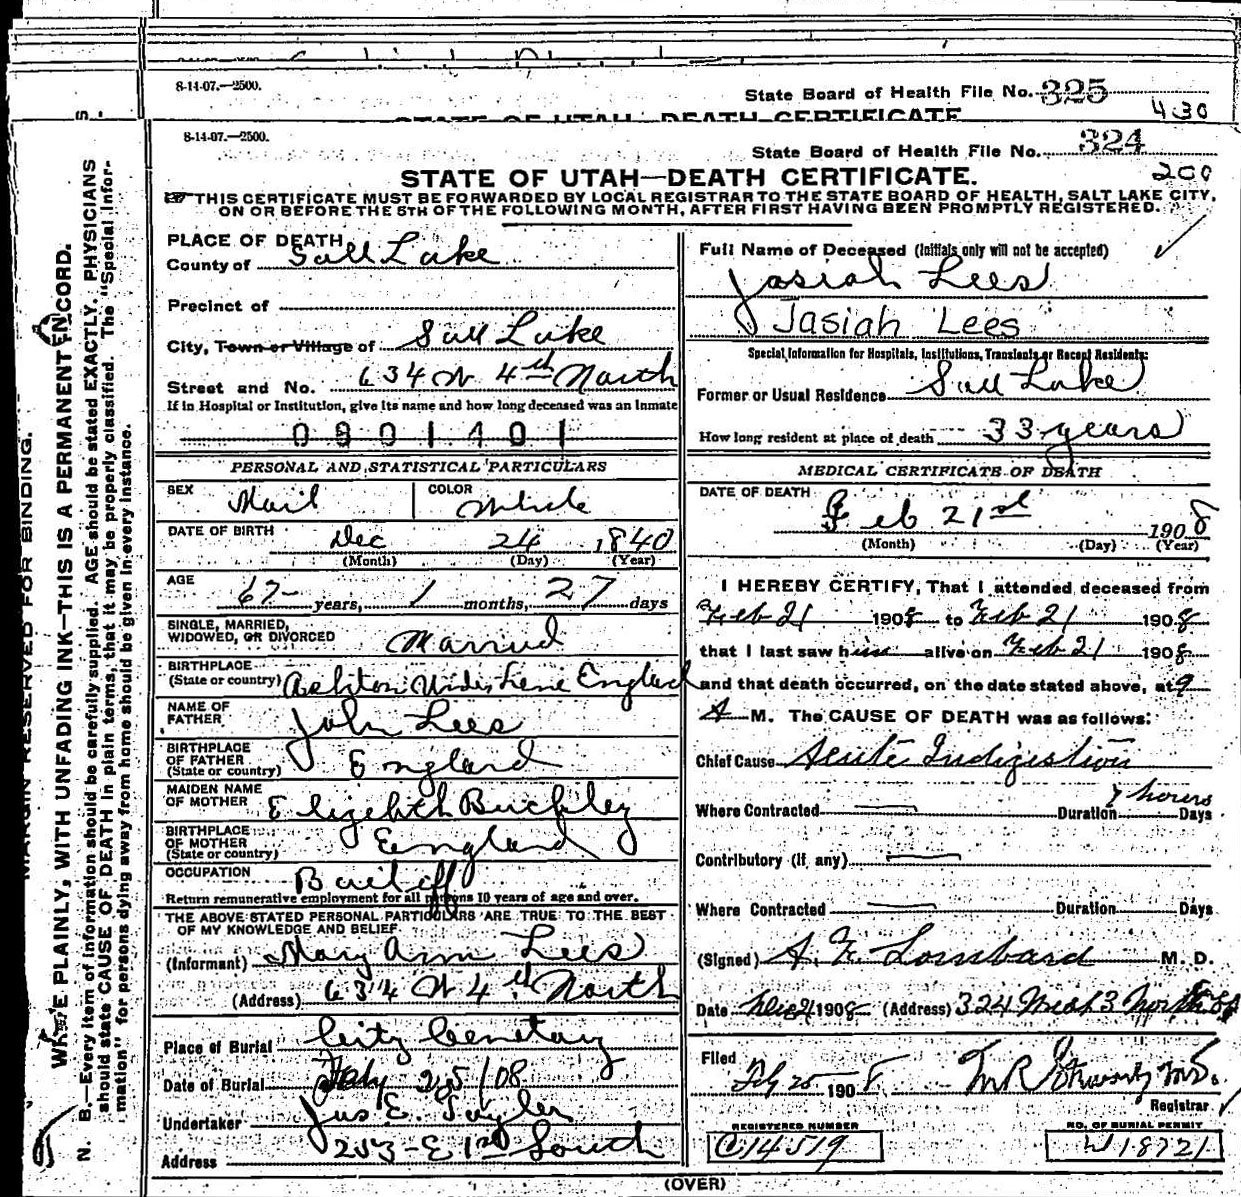 8-14-07.—2500.
State Board of Health File No. 325
430
STATE OF UTAH—DEATH CERTIFICATE
8-14-07.—2500.
State Board of Health File No. 324
200
STATE OF UTAH—DEATH CERTIFICATE.
THIS CERTIFICATE MUST BE FORWARDED BY LOCAL REGISTRAR TO THE STATE BOARD OF HEALTH, SALT LAKE CITY,
ON OR BEFORE THE 5TH OF THE FOLLOWING MONTH, AFTER FIRST HAVING BEEN PROMPTLY REGISTERED.
MARGIN RESERVED FOR BINDING.
WRITE PLAINLY, WITH UNFADING INK—THIS IS A PERMANENT RECORD.
N. B.—Every item of information should be carefully supplied. AGE should be stated EXACTLY. PHYSICIANS
should state CAUSE OF DEATH in plain terms, that it may be properly classified. The "Special Infor-
mation" for persons dying away from home should be given in every instance.
PLACE OF DEATH
County of Salt Lake
Precinct of
City, Town or Village of Salt Lake
Street and No. 634 W 4th North
If in Hospital or Institution, give its name and how long deceased was an inmate
0801401
PERSONAL AND STATISTICAL PARTICULARS
SEX Mail COLOR White
DATE OF BIRTH Dec 24 1840
(Month) (Day) (Year)
AGE 67 years, 1 months, 27 days
SINGLE, MARRIED,
WIDOWED, OR DIVORCED Married
BIRTHPLACE
(State or country) Ashton Under Line England
NAME OF
FATHER John Lees
BIRTHPLACE
OF FATHER
(State or country) England
MAIDEN NAME
OF MOTHER Elizebeth Buckley
BIRTHPLACE
OF MOTHER
(State or country) England
OCCUPATION Bailiff
Return remunerative employment for all persons 10 years of age and over.
THE ABOVE STATED PERSONAL PARTICULARS ARE TRUE TO THE BEST
OF MY KNOWLEDGE AND BELIEF
(Informant) Mary Ann Lees
(Address) 634 W 4th North
Place of Burial City Cemetary
Date of Burial Feby 25/08
Undertaker Jos E. Taylor
Address 253-E 1st South
Full Name of Deceased (Initials only will not be accepted)
Josiah Lees
Jasiah Lees
Special Information for Hospitals, Institutions, Transients or Recent Residents:
Former or Usual Residence Salt Lake
How long resident at place of death 33 years
MEDICAL CERTIFICATE OF DEATH
DATE OF DEATH Feb 21st 1908
(Month) (Day) (Year)
I HEREBY CERTIFY, That I attended deceased from
Feb 21 1908 to Feb 21 1908
that I last saw him alive on Feb 21 1908
and that death occurred, on the date stated above, at 9
A M. The CAUSE OF DEATH was as follows:
Chief Cause Acute Indigestion
Where Contracted Duration 7 hours Days
Contributory (if any)
Where Contracted Duration Days
(Signed) A. E. Lombard M. D.
Date 1908 (Address) 324 West 3 North
Filed
Feby 25 1908
Registrar
REGISTERED NUMBER
C14519
NO. OF BURIAL PERMIT
W18721
(OVER)